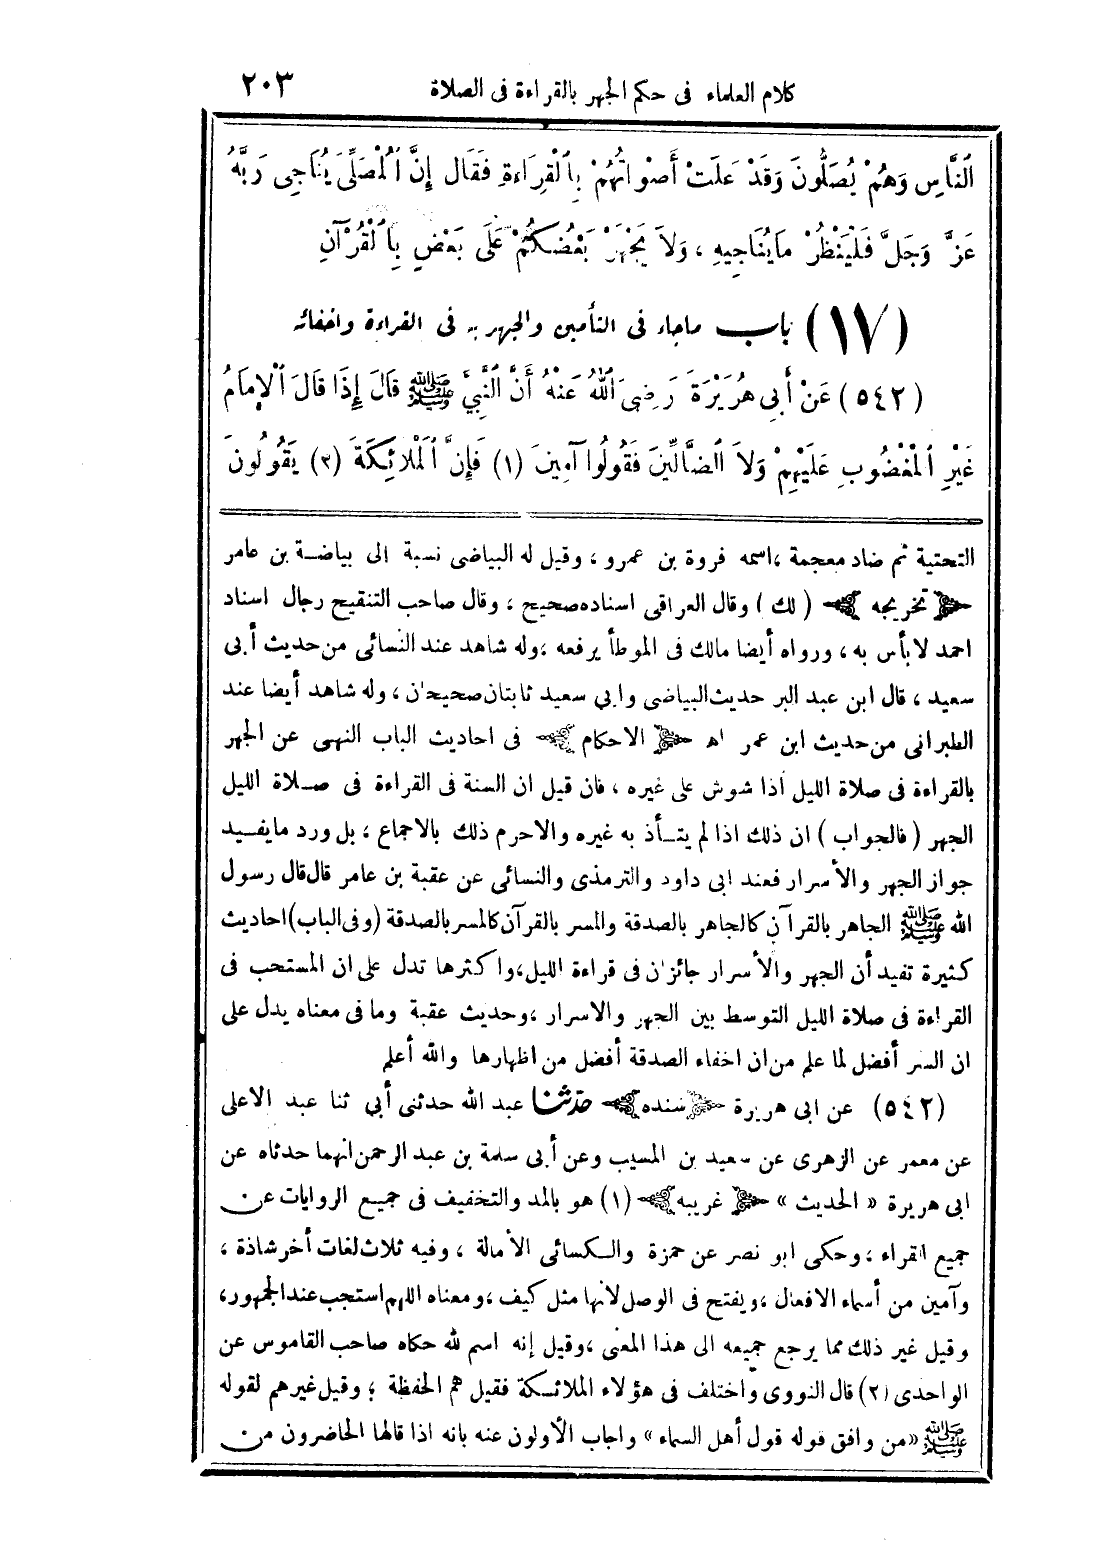 كلام العلماء فى حكم الجهر بالقراءة فى الصلاة ٢٠٣
ٱلنَّاسِ وَهُمْ يُصَلُّونَ وَقَدْ عَلَتْ أَصْوَاتُهُمْ بِٱلْقِرَاءَةِ فَقَالَ إِنَّ ٱلْمُصَلِّىَ يُنَاجِى رَبَّهُ
عَزَّ وَجَلَّ فَلْيَنْظُرْ مَايُنَاجِيهِ ، وَلاَ يَجْهَرْ بَعْضُكُمْ عَلَى بَعْضٍ بِالْقُرْآنِ
(١٧) باب ماجاء فى التأمين والجهر به فى القراءة واخفائه
(٥٤٢) عَنْ أَبِي هُرَيْرَةَ رَضِىَ ٱللهُ عَنْهُ أَنَّ ٱلنَّبِيَّ ﷺ قَالَ إِذَا قَالَ ٱلْإِمَامُ
غَيْرِ ٱلْمَغْضُوبِ عَلَيْهِمْ وَلاَ ٱلضَّالِّينَ فَقُولُوا آمِينَ (١) فَإِنَّ ٱلْمَلَائِكَةَ (٢) يَقُولُونَ
التحتية ثم ضاد معجمة ،اسمه فروة بن عمرو ، وقيل له البياضى نسبة الى بياضة بن عامر
﴿ تخريجه ﴾ ( لك ) وقال العراقى اسناده صحيح ، وقال صاحب التنقيح رجال اسناد
احمد لا بأس به ، ورواه أيضا مالك فى الموطأ يرفعه ،وله شاهد عند النسائى من حديث أبى
سعيد ، قال ابن عبد البر حديث البياضى وابي سعيد ثابتان صحيحان ، وله شاهد أيضا عند
الطبرانى من حديث ابن عمر اه ﴿ الاحكام ﴾ فى احاديث الباب النهى عن الجهر
بالقراءة فى صلاة الليل اذا شوش على غيره ، فان قيل ان السنة فى القراءة فى صلاة الليل
الجهر ( فالجواب ) ان ذلك اذا لم يتأذ به غيره والاحرم ذلك بالاجماع ، بل ورد ما يفيد
جواز الجهر والأسرار فعند ابى داود والترمذى والنسائى عن عقبة بن عامر قال قال رسول
الله ﷺ الجاهر بالقرآن كالجاهر بالصدقة والمسر بالقرآن كالمسر بالصدقة (وفى الباب) احاديث
كثيرة تفيد أن الجهر والأسرار جائزان فى قراءة الليل ،واكثرها تدل على ان المستحب فى
القراءة فى صلاة الليل التوسط بين الجهر والاسرار ،وحديث عقبة وما فى معناه يدل على
ان السر أفضل لما علم من ان اخفاء الصدقة أفضل من اظهارها والله أعلم
(٥٤٢) عن ابى هريرة ﴿ سنده ﴾ حدثنا عبد الله حدثنى أبي ثنا عبد الاعلى
عن معمر عن الزهرى عن سعيد بن المسيب وعن أبى سلمة بن عبد الرحمن انهما حدثاه عن
ابى هريرة « الحديث » ﴿ غريبه ﴾ (١) هو بالمد والتخفيف فى جميع الروايات عن
جميع القراء ،وحكى ابو نصر عن حمزة والكسائى الأمالة ، وفيه ثلاث لغات أخر شاذة ،
وآمين من أسماء الافعال ،ويفتح فى الوصل لانها مثل كيف ،ومعناه اللهم استجب عند الجمهور،
وقيل غير ذلك مما يرجع جميعه الى هذا المعنى ،وقيل إنه اسم لله حكاه صاحب القاموس عن
الواحدى (٢) قال النووى واختلف فى هؤلاء الملائكة فقيل هم الحفظة ؛ وقيل غيرهم لقوله
ﷺ «من وافق قوله قول أهل السماء » واجاب الأولون عنه بانه اذا قالها الحاضرون من